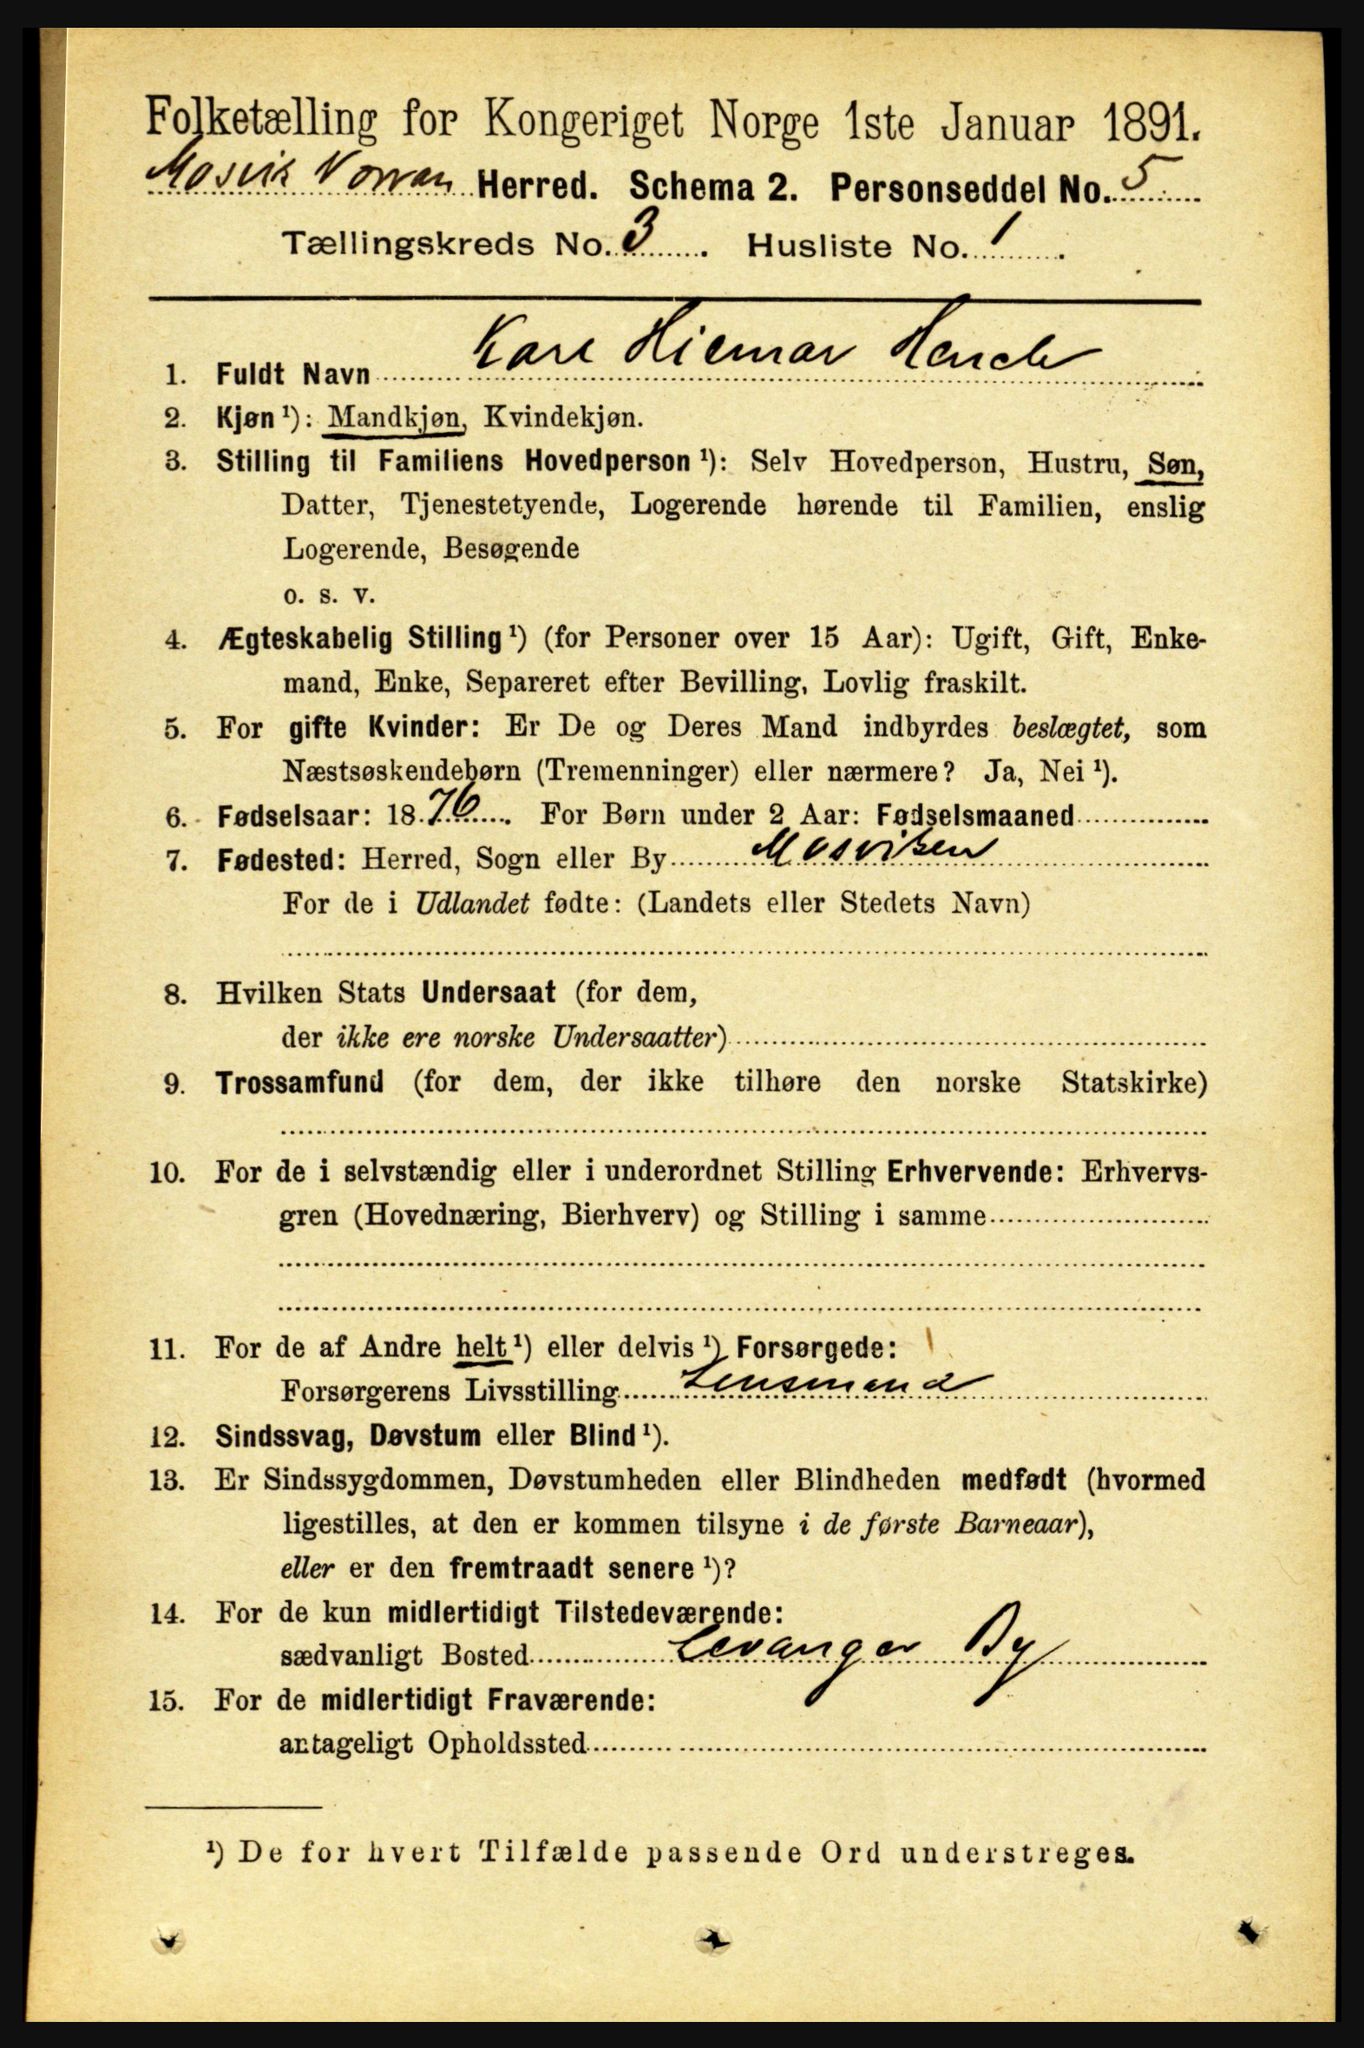 Folketælling for Kongeriget Norge 1ste Januar 1891.
Mosvik Verran Herred. Schema 2. Personseddel No. 5
Tællingskreds No. 3. Husliste No. 1.
1. Fuldt Navn Karl Hilmar
2. Kjøn ¹): Mandkjøn, Kvindekjøn.
3. Stilling til Familiens Hovedperson ¹): Selv Hovedperson, Hustru, Søn,
Datter, Tjenestetyende, Logerende hørende til Familien, enslig
Logerende, Besøgende
o. s. v.
4. Ægteskabelig Stilling ¹) (for Personer over 15 Aar): Ugift, Gift, Enke-
mand, Enke, Separeret efter Bevilling, Lovlig fraskilt.
5. For gifte Kvinder: Er De og Deres Mand indbyrdes beslægtet, som
Næstsøskendebørn (Tremenninger) eller nærmere? Ja, Nei ¹).
6. Fødselsaar: 1876. For Børn under 2 Aar: Fødselsmaaned
7. Fødested: Herred, Sogn eller By Mosviken
For de i Udlandet fødte: (Landets eller Stedets Navn)
8. Hvilken Stats Undersaat (for dem,
der ikke ere norske Undersaatter)
9. Trossamfund (for dem, der ikke tilhøre den norske Statskirke)
10. For de i selvstændig eller i underordnet Stilling Erhvervende: Erhvervs-
gren (Hovednæring, Bierhverv) og Stilling i samme
11. For de af Andre helt ¹) eller delvis ¹) Forsørgede:
Forsørgerens Livsstilling Lensmand
12. Sindssvag, Døvstum eller Blind ¹).
13. Er Sindssygdommen, Døvstumheden eller Blindheden medfødt (hvormed
ligestilles, at den er kommen tilsyne i de første Barneaar),
eller er den fremtraadt senere ¹)?
14. For de kun midlertidigt Tilstedeværende:
sædvanligt Bosted Levanger By
15. For de midlertidigt Fraværende:
antageligt Opholdssted
¹) De for hvert Tilfælde passende Ord understreges.